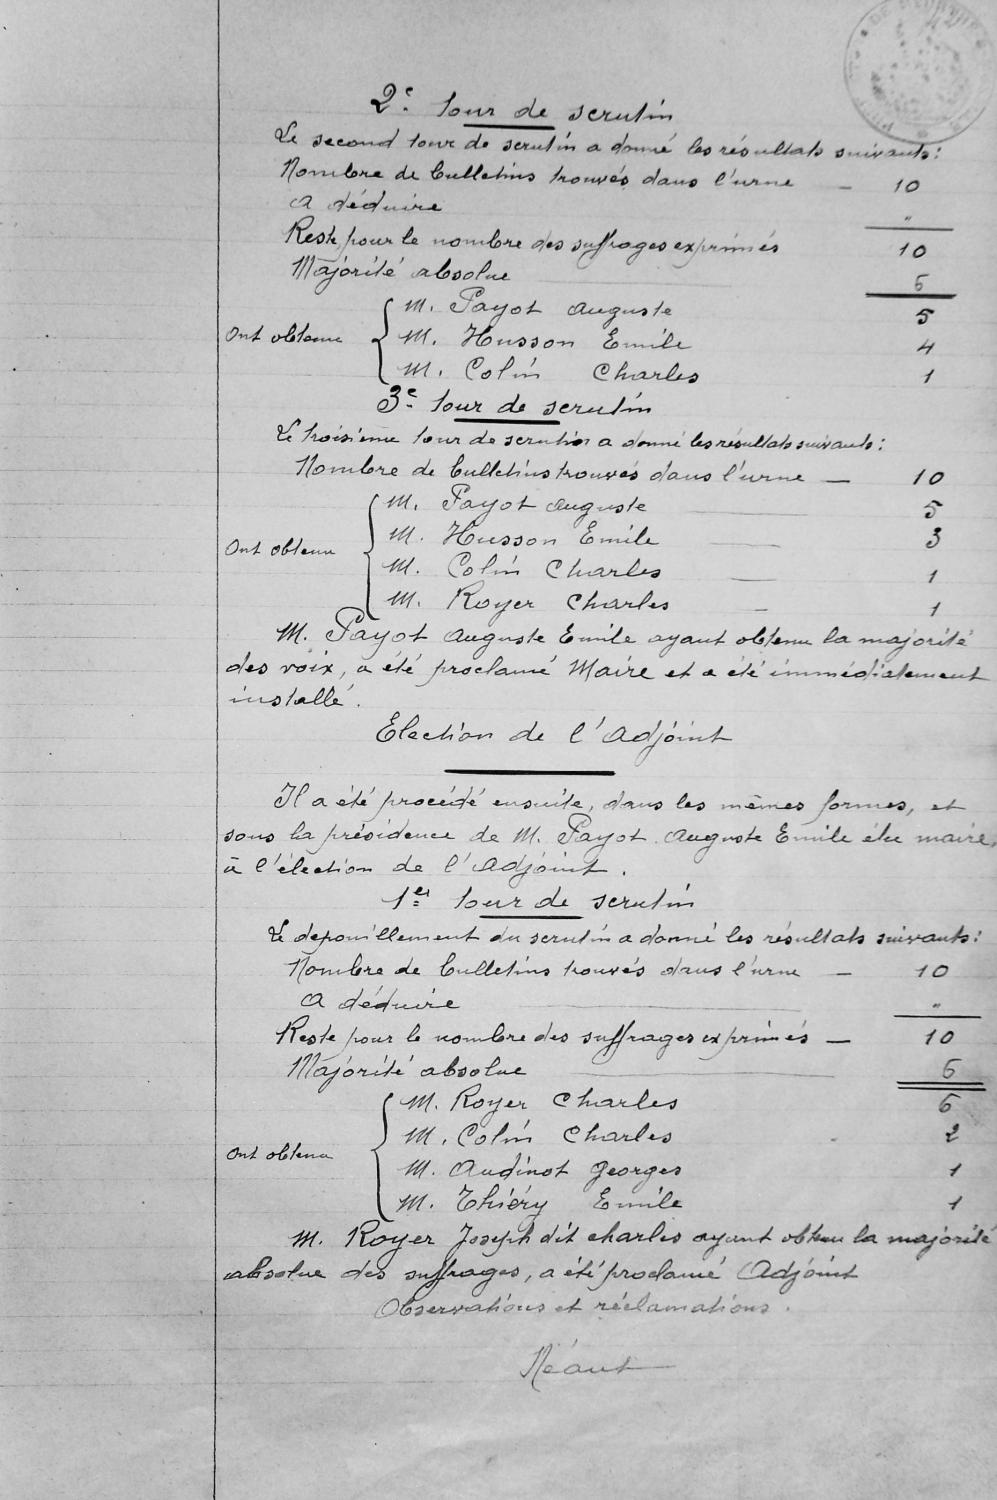 2e tour de scrutin
Le second tour de scrutin a donné les résultats suivants :
Nombre de bulletins trouvés dans l'urne — 10
A déduire "
Reste pour le nombre des suffrages exprimés 10
Majorité absolue 6
M. Payot Auguste 5
Ont obtenu M. Husson Emile 4
M. Colin Charles 1
3e tour de scrutin
Le troisième tour de scrutin a donné les résultats suivants :
Nombre de bulletins trouvés dans l'urne — 10
M. Payot Auguste 5
M. Husson Emile 3
Ont obtenu
M. Colin Charles 1
M. Royer Charles 1
M. Payot Auguste Emile ayant obtenu la majorité
des voix, a été proclamé Maire et a été immédiatement
installé.
Election de l'Adjoint
Il a été procédé ensuite, dans les mêmes formes, et
sous la présidence de M. Payot Auguste Emile élu maire,
à l'élection de l'Adjoint.
1er tour de scrutin
Le depouillement du scrutin a donné les résultats suivants :
Nombre de bulletins trouvés dans l'urne — 10
A déduire "
Reste pour le nombre des suffrages exprimés — 10
Majorité absolue 6
M. Royer Charles 6
M. Colin Charles 2
Ont obtenu
M. Audinot Georges 1
M. Thiéry Emile 1
M. Royer Joseph dit Charles ayant obtenu la majorité
absolue des suffrages, a été proclamé Adjoint
Observations et réclamations.
Néant